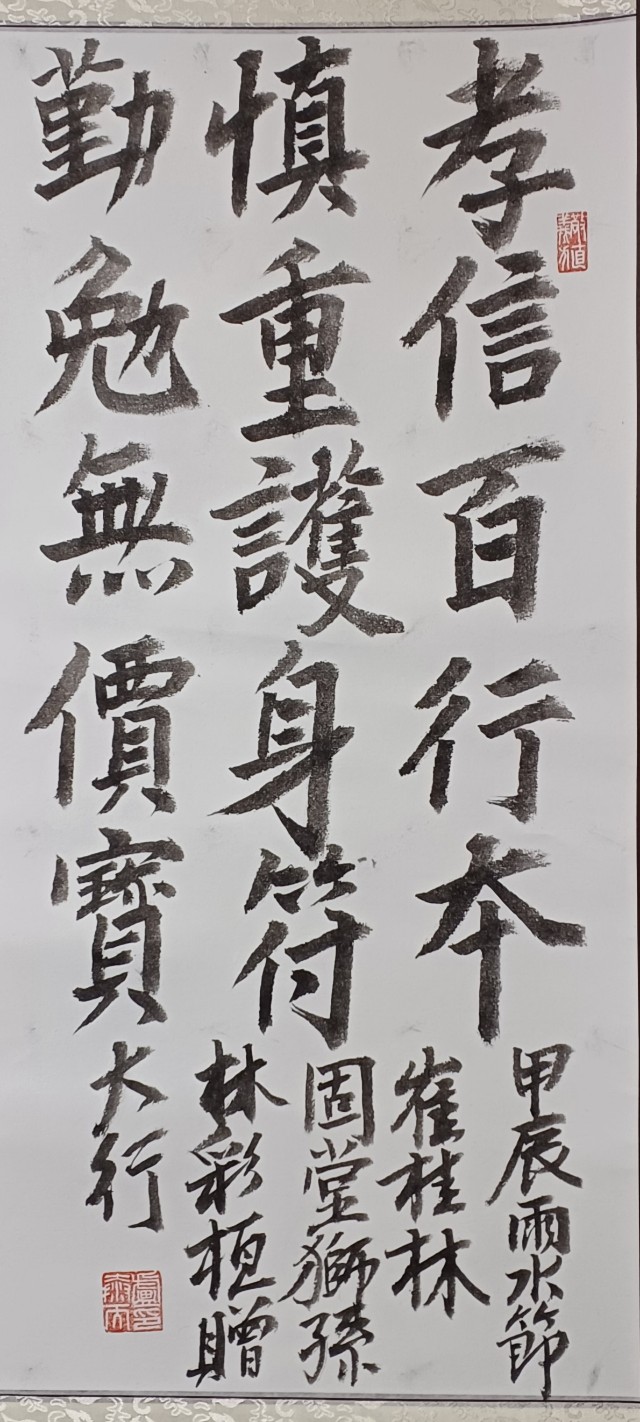 孝信百行本
慎重護身符
勤勉無價寶
甲辰雨水節
崔桂林
固堂獅孫
林彩桓贈
大行